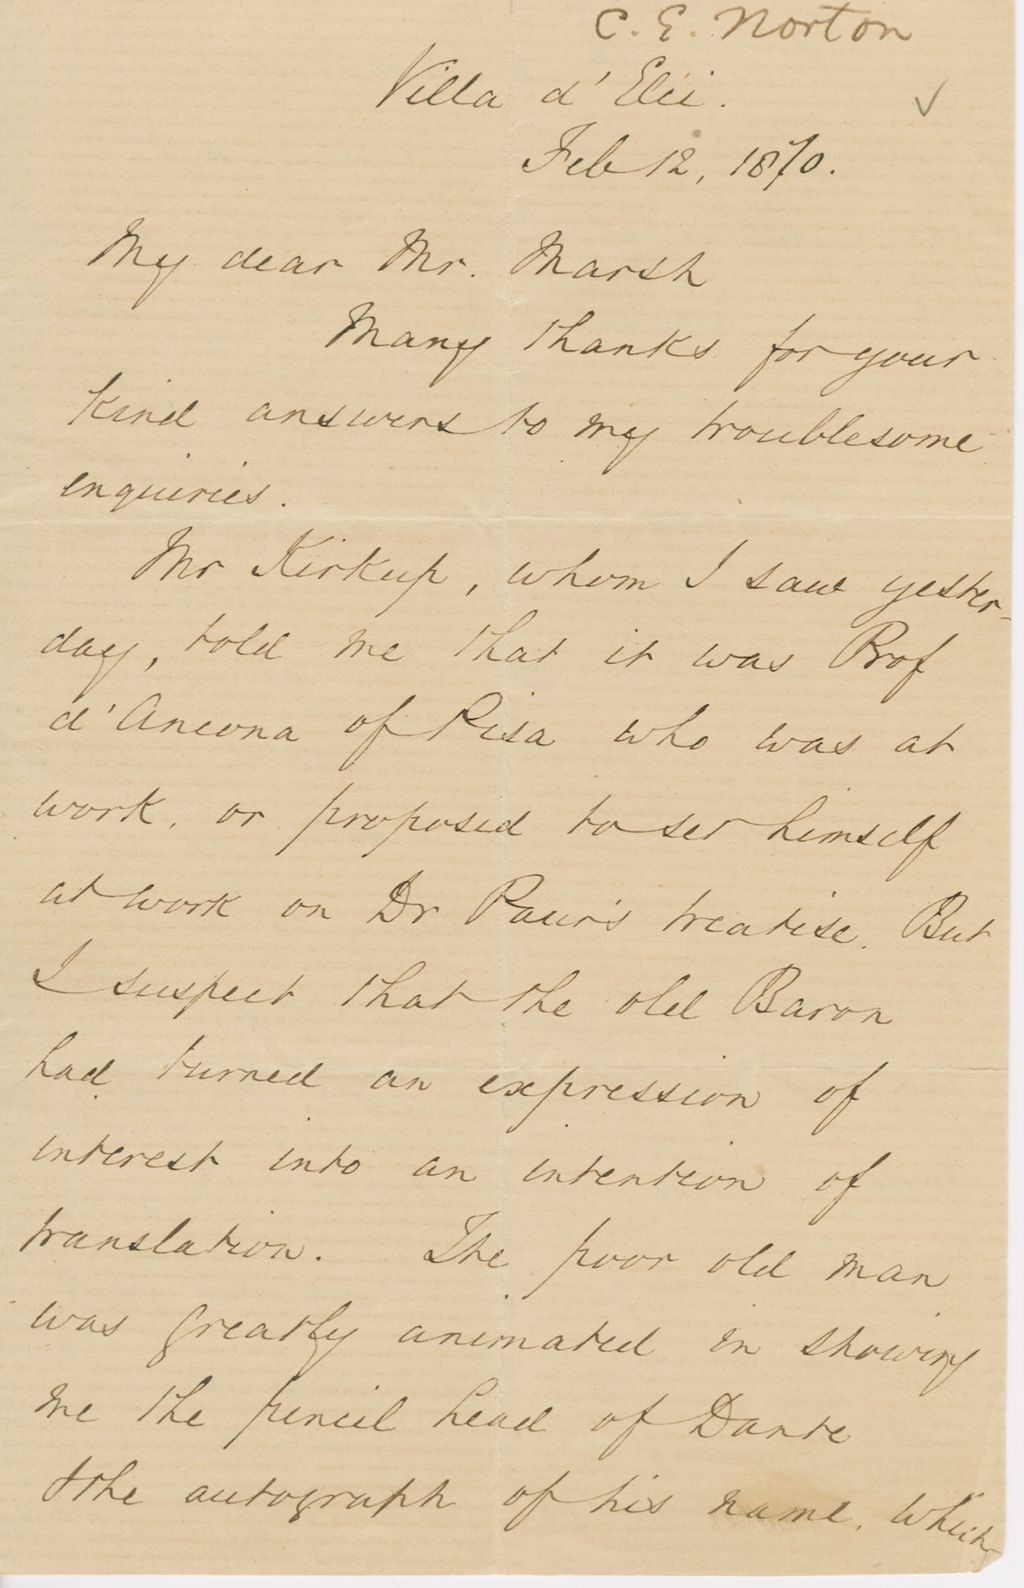 C. E. Norton
Villa d'Elci.
Feb 12, 1870.
My dear Mr. Marsh
Many thanks for your
kind answers to my troublesome
enquiries.
Mr Kirkup, whom I saw yester-
day, told me that it was Prof
d'Ancona of Pisa who was at
work, or proposed to set himself
at work on Dr Paur's treatise. But
I suspect that the old Baron
had turned an expression of
interest into an intention of
translation. The poor old man
was greatly animated in showing
me the pencil head of Dante
& the autograph of his name, which